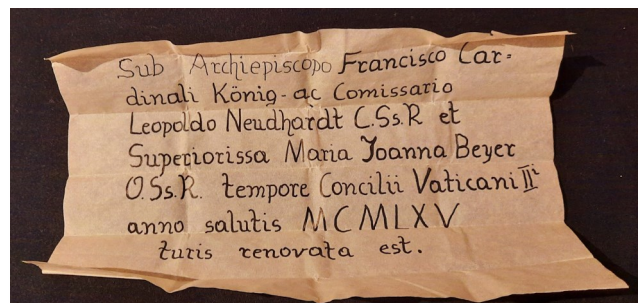 Sub Archiepiscopo Francisco Car=
dinali König - ac Comissario
Leopoldo Neudhardt C.Ss.R et
Superiorissa Maria Joanna Beyer
O.Ss.R. tempore Concilii Vaticani IIi
anno salutis MCMLXV
turis renovata est.